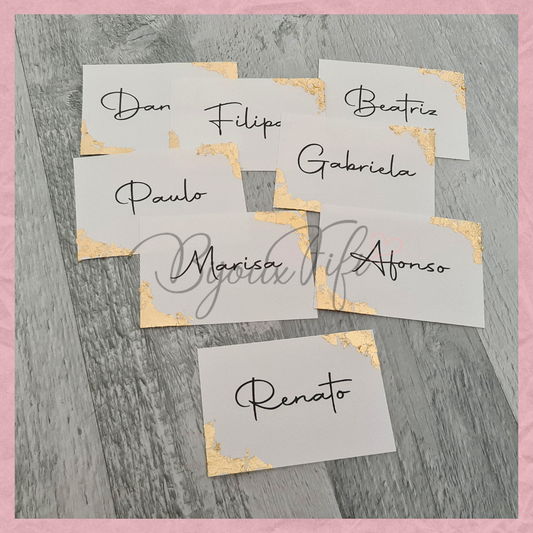 Dan
Filipa
Beatriz
Gabriela
Paulo
Marisa
Afonso
Bijoux Fifi
Renato